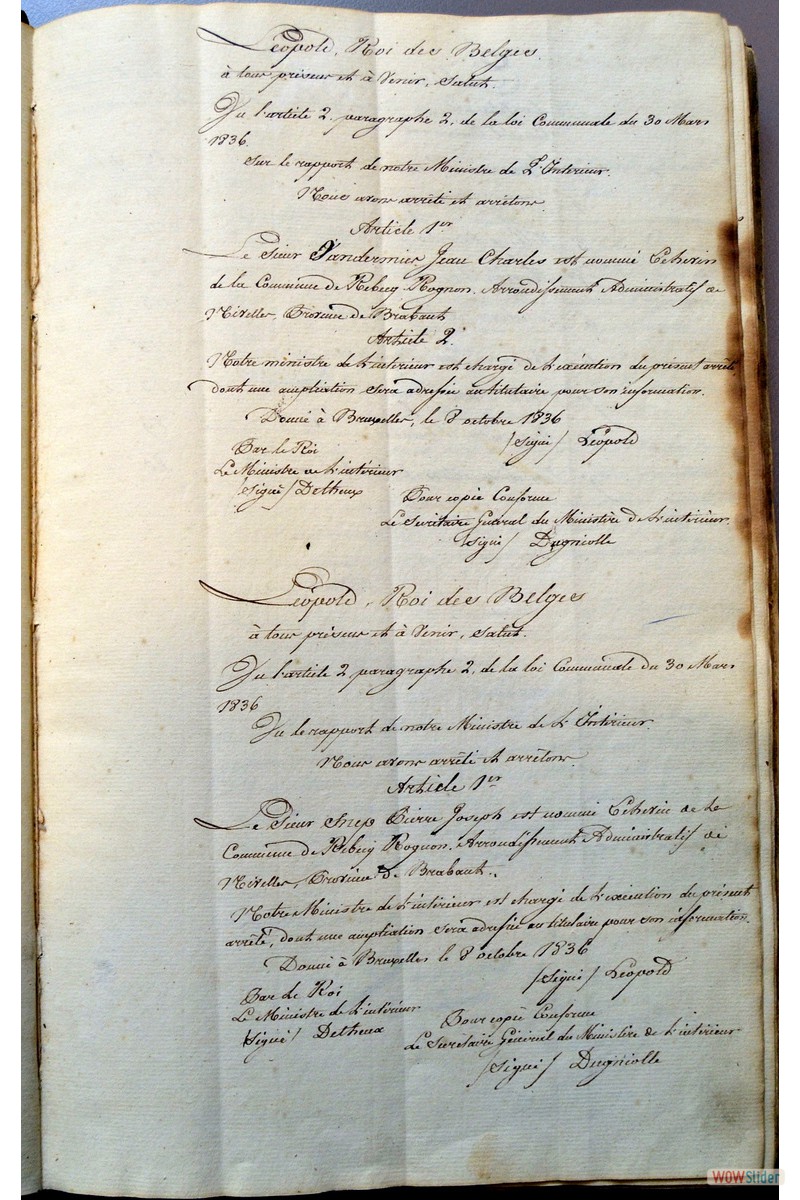 Léopold, Roi des Belges
à tous présens et à Venir, Salut.
Vu l'article 2. paragraphe 2, de la loi Communale du 30 Mars
1836.
Sur le rapport de notre Ministre de L'Intérieur.
Nous avons arrêté et arrêtons
Article 1er
Le Sieur Vandermies Jean Charles est nommé Echevin
de la Commune de Rebecq Rognon, Arrondissement Administratif de
Nivelles, Province de Brabant
Article 2.
Notre ministre de l'intérieur est chargé de l'exécution du présent arrêté
dont une ampliation sera adressée au titulaire pour son information.
Donné à Bruxelles, le 8 octobre 1836
Par le Roi
/signé/ Léopold
Le Ministre de l'intérieur
/Signé/ Detheux
Pour copie Conforme
Le Secrétaire Général du Ministère de l'intérieur
/signé/ Dugniolle
Léopold, Roi des Belges
à tous présens et à Venir, Salut.
Vu l'article 2 paragraphe 2, de la loi Communale du 30 Mars
1836
Vu le rapport de notre Ministre de l'Intérieur.
Nous avons arrêté et arrêtons
Article 1er
Le Sieur Snep Pierre Joseph est nommé Echevin de la
Commune de Rebecq Rognon, Arrondissement Administratif de
Nivelles, Province de Brabant.
Notre Ministre de l'intérieur est chargé de l'exécution du présent
arrêté, dont une ampliation sera adressée au titulaire pour son information.
Donné à Bruxelles le 8 octobre 1836
/Signé/ Léopold
Par le Roi
Le Ministre de l'intérieur
/Signé/ Detheux
Pour copie Conforme
Le Secrétaire Général du Ministère de l'intérieur
/Signé/ Dugniolle
WOWSlider